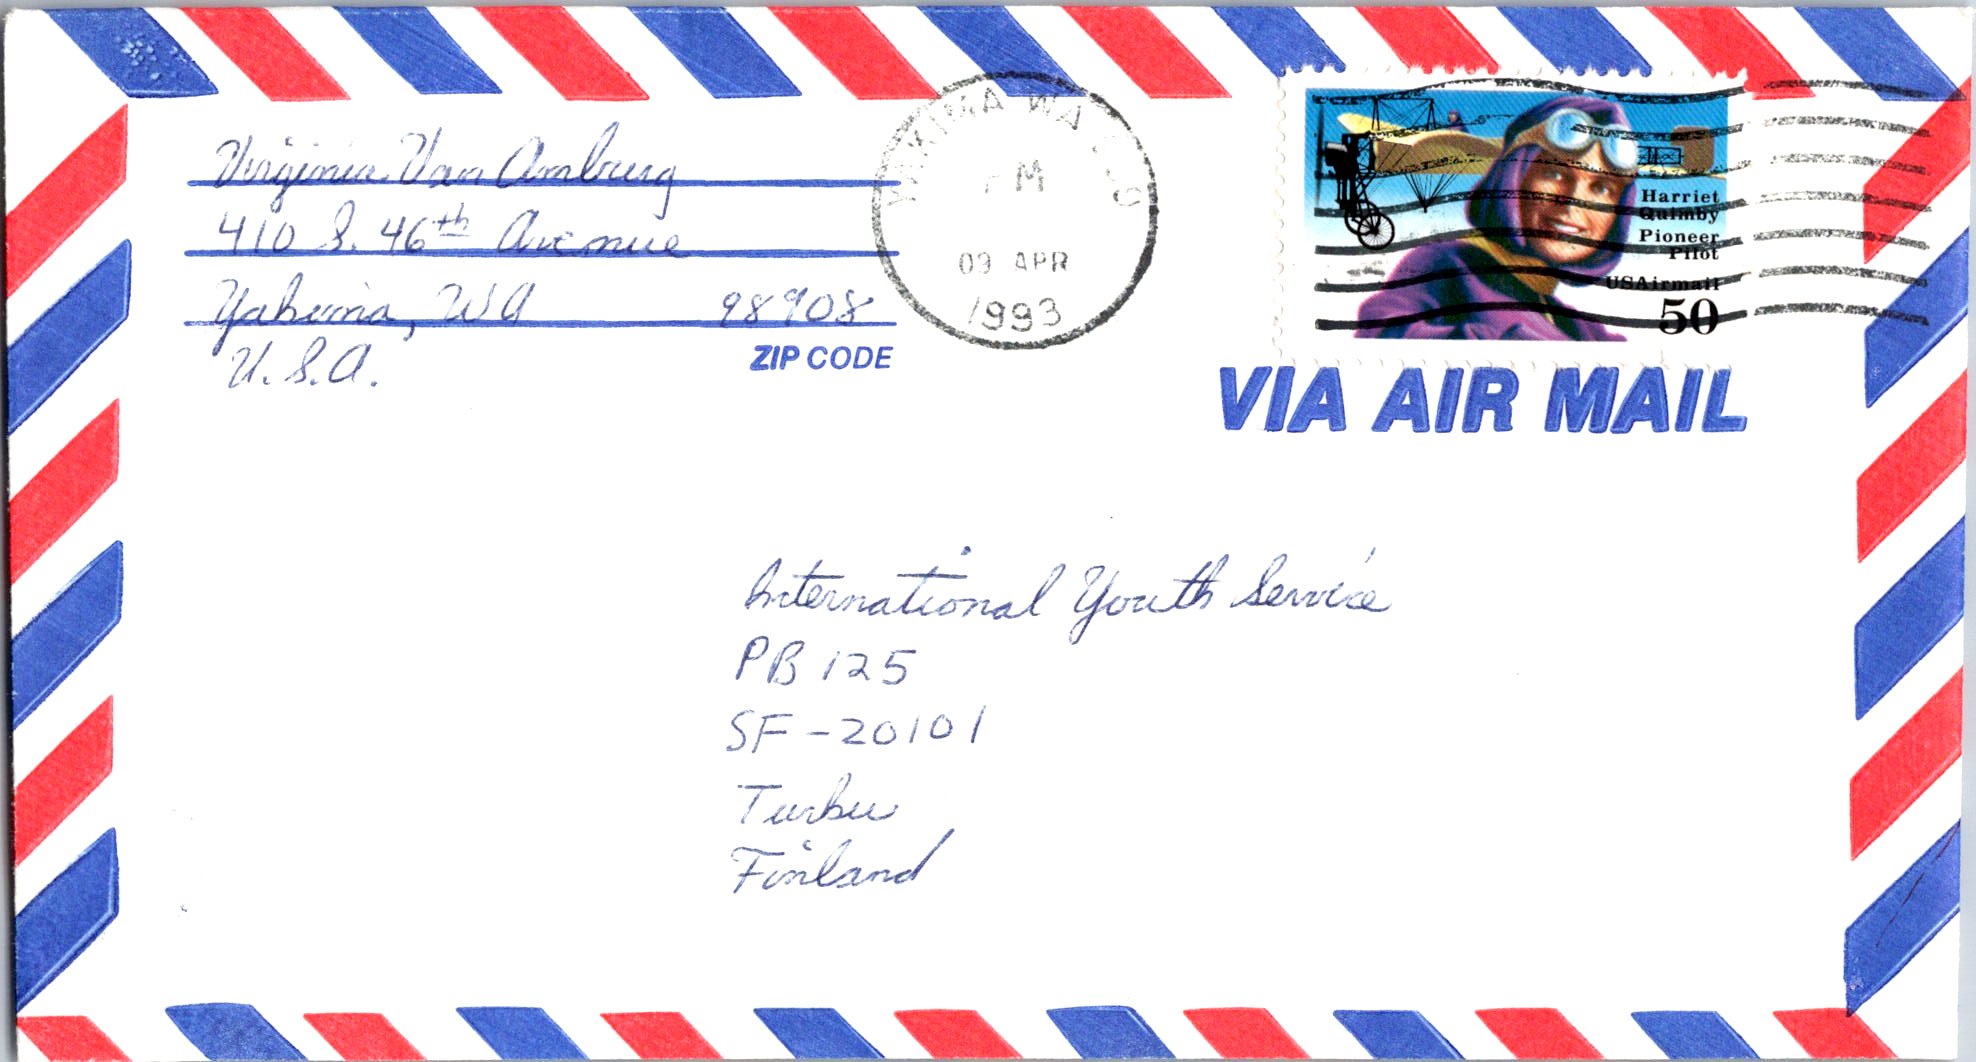 Virginia Van Amburg
410 S. 46th Avenue
Yakima, WA 98908
ZIP CODE
U.S.A.
YAKIMA WA
PM
09 APR
1993
Harriet
Quimby
Pioneer
Pilot
USAirmail
50
VIA AIR MAIL
International Youth Service
PB 125
SF-20101
Turku
Finland